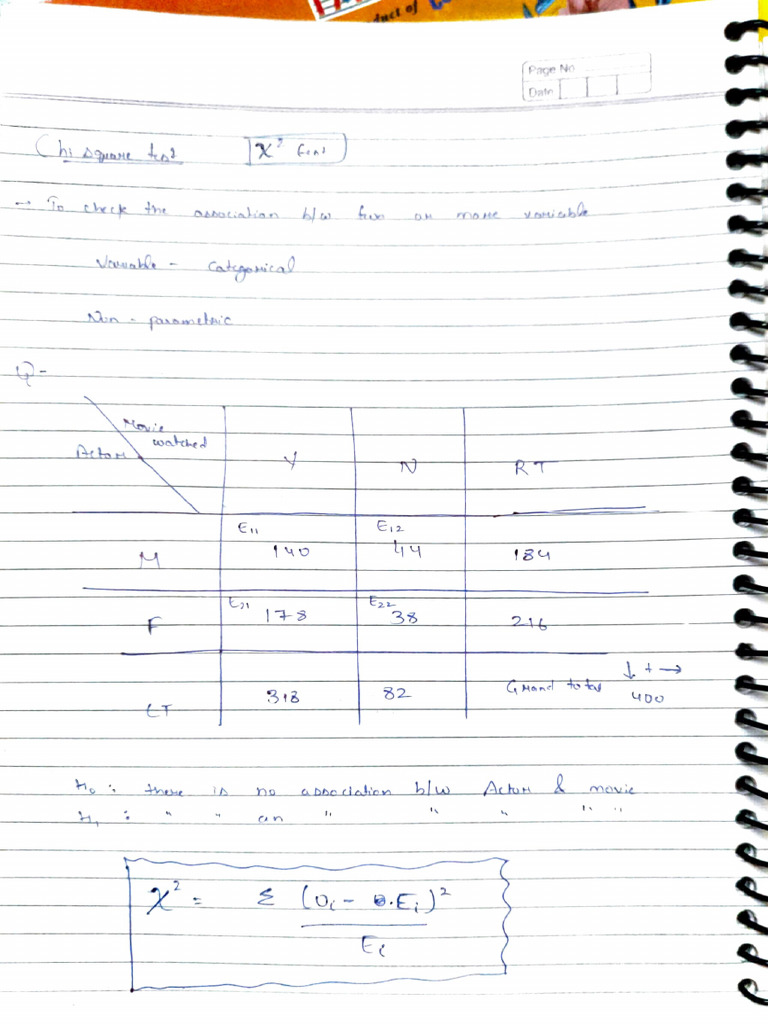 duct of
Page No
Date
Chi square test χ² test
→ To check the association b/w two or more variable
Variable - Categorical
Non - parametric
Q-
Movie watched
Actor Y N RT
E₁₁ E₁₂
M 140 44 184
E₂₁ E₂₂
F 178 38 216
CT 318 82 Grand total ↓ + → 400
H₀ : there is no association b/w Actor & movie
H₁ : " " an " " " " "
χ² = Σ (Oᵢ - Eᵢ)² / Eᵢ